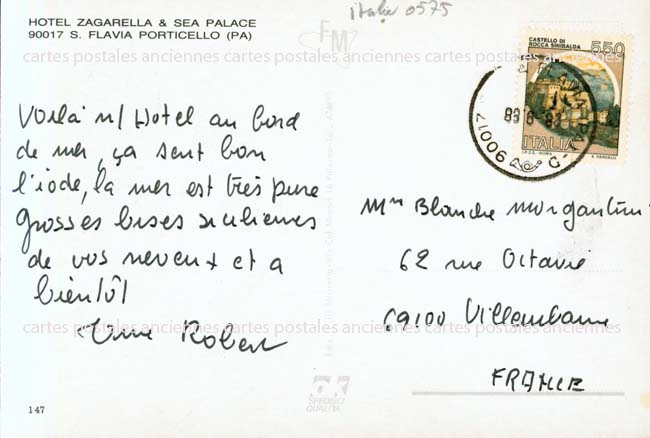 italie 0575
HOTEL ZAGARELLA & SEA PALACE
90017 S. FLAVIA PORTICELLO (PA)
FM
CASTELLO DI
ROCCA SINIBALDA
550
ITALIA
I.P.Z.S. - ROMA
90017
cartes postales anciennes cartes postales anciennes cartes postales anciennes
Voilà n/ Hotel au bord
de mer, ça sent bon
l'iode, la mer est très pure
grosses bises siciliennes
de vos neveux et a
bientôt
Robert
Mme Blanche Morgantini
62 rue Octavie
69100 Villeurbanne
FRANCE
cartes postales anciennes cartes postales anciennes cartes postales anciennes
SPEDISCI
QUALITÀ
147